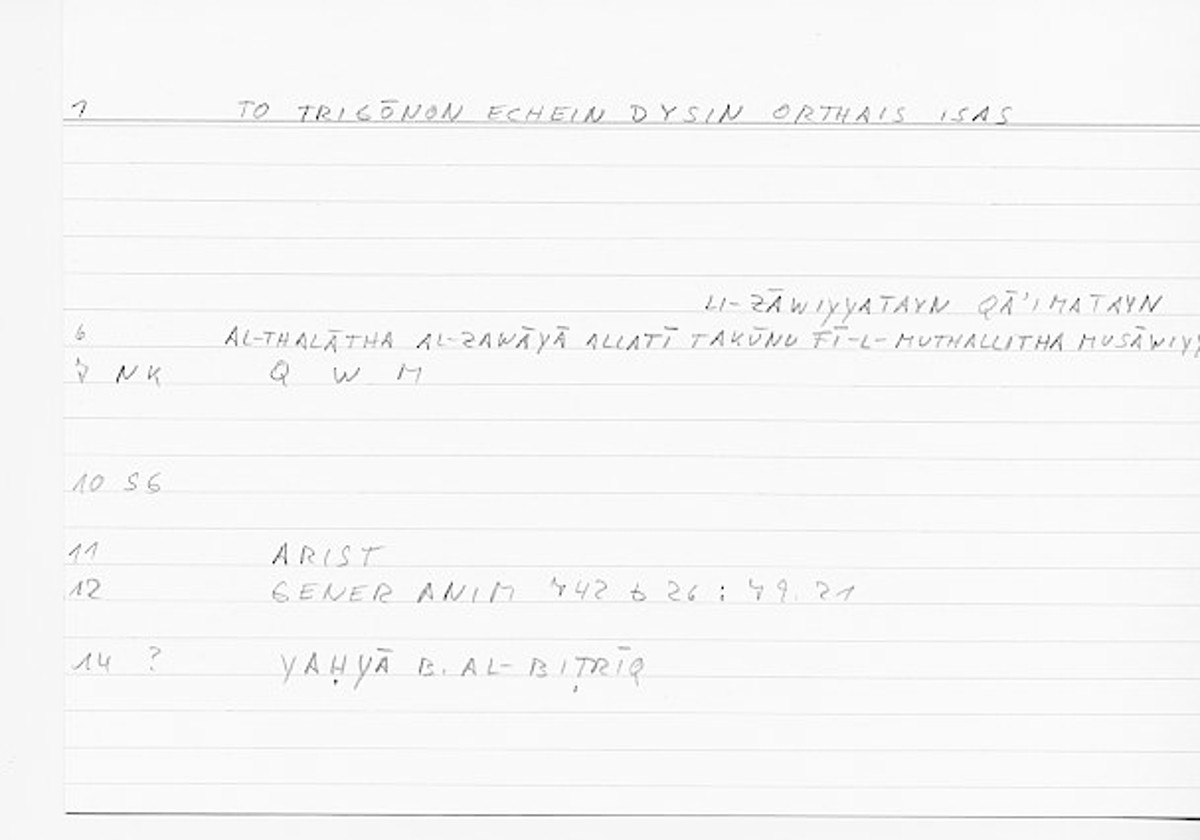 1 TO TRIGŌNON ECHEIN DYSIN ORTHAIS ISAS
LI-ZĀWIYYATAYN QĀ'IMATAYN
6 AL-THALĀTHA AL-ZAWĀYĀ ALLATĪ TAKŪNU FĪ-L-MUTHALLITHA MUSĀWIYY
7 NK Q W M
10 SG
11 ARIST
12 GENER ANIM 742 b 26 : 79.21
14 ? YAḤYĀ B. AL-BIṬRĪQ